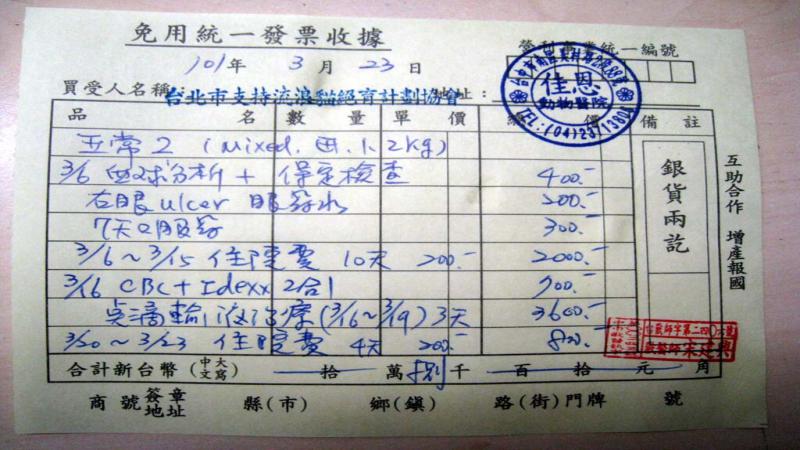 免用統一發票收據
營利事業統一編號
101年 3月 23日
買受人名稱: 台北市支持流浪貓絕育計劃協會 地址:
佳恩
動物醫院
品名 數量 單價 總價 備註
(Mixed, 1.2kg)
3/6 血球分析 + 保定檢查 400.-
右眼 ulcer 眼藥水 200.-
7天口服藥 300.-
3/6~3/15 住院費 10天 200.- 2000.-
3/16 CBC + Idexx 2合1
點滴輸液治療 (3/16~3/19) 3天 3600.-
3/20~3/23 住院費 4天 200.- 800.-
合計新台幣(中文大寫) 拾 萬 捌 千 百 拾 元 角
商號簽章地址 縣(市) 鄉(鎮) 路(街)門牌 號
銀貨兩訖
互助合作 增產報國